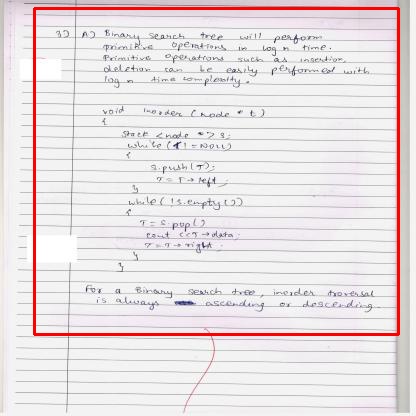 3) A) Binary search tree will perform
primitive operations in log n time.
Primitive operations such as insertion,
deletion can be easily performed with
log n time complexity.
void inorder (node * t)
{
Stack <node *> s;
while (t != NULL)
{
s.push(T);
T = T → left;
}
while (!s.empty())
{
T = s.pop()
cout << T → data;
T = T → right;
}
}
For a Binary search tree, inorder traversal
is always ascending or descending.